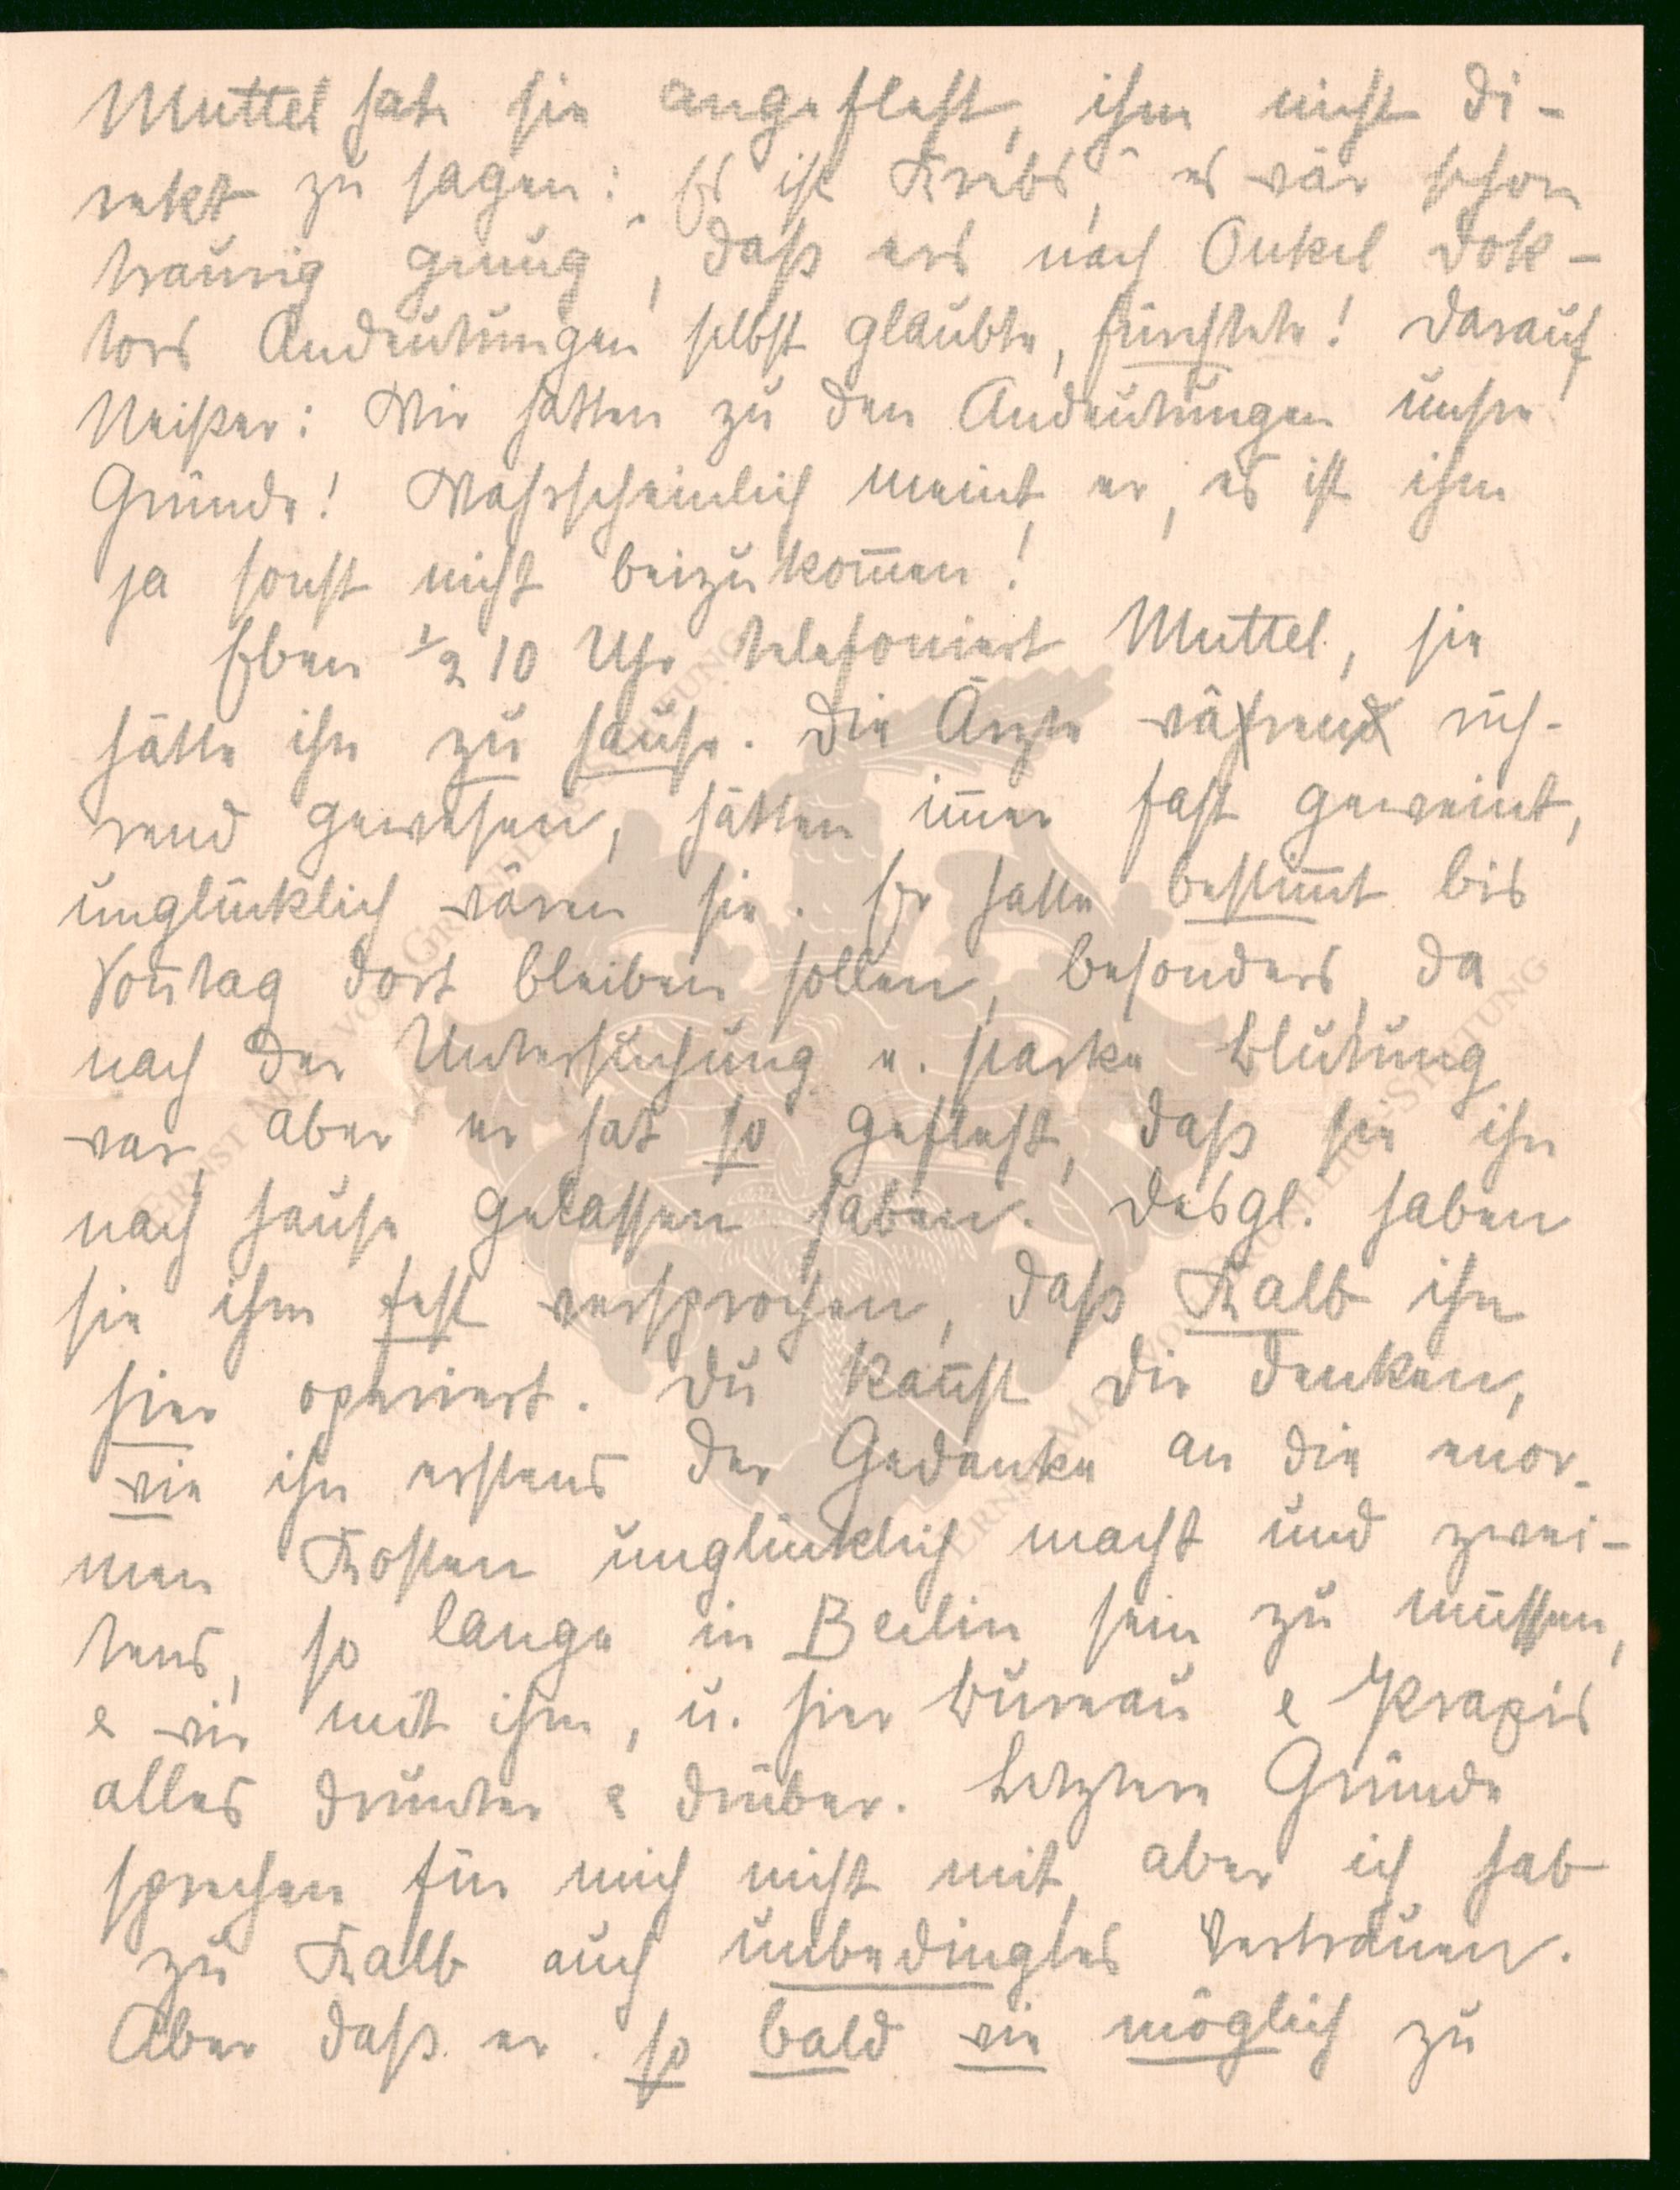 Muttel hab sie angefleht, ihm nicht di-
rekt zu sagen: „Es ist Krebs", es wär schon
traurig genug, daß ers nach Onkel Dok-
tors Andeutungen selbst glaubte, fürchtete! Darauf
Neißer: Wir hatten zu den Andeutungen unsre
Gründe! Wahrscheinlich meint er, es ist ihm
ja sonst nicht beizukom̅en!
Eben ½ 10 Uhr telefoniert Muttel, sie
hätte ihn zu Hause. Die Ärzte während rüh-
rend gewesen, hätten im̅er fast geweint,
unglücklich wären sie. Er hatte bestim̅t bis
Son̅tag dort bleiben sollen, besonders da
nach der Untersuchung e. starke Blutung
war, aber er hat so gefleht, daß sie ihn
nach Hause gelassen haben. Desgl. haben
sie ihm fest versprochen, daß Kalb ihn
hier operiert. Du kan̅st dir denken,
wie ihn erstens der Gedanke an die enor-
men Kosten unglücklich macht und zwei-
tens, so lange in Berlin sein zu müssen,
& wir mit ihm, u. hier Bureau & Praxis
alles drunter & drüber. Letztere Gründe
sprechen für mich nicht mit, aber ich hab
zu Kalb auch unbedingtes Vertrauen.
Aber daß er so bald wie möglich zu
ERNST MAX VON GRUNELIUS-STIFTUNG
ERNST MAX VON GRUNELIUS-STIFTUNG